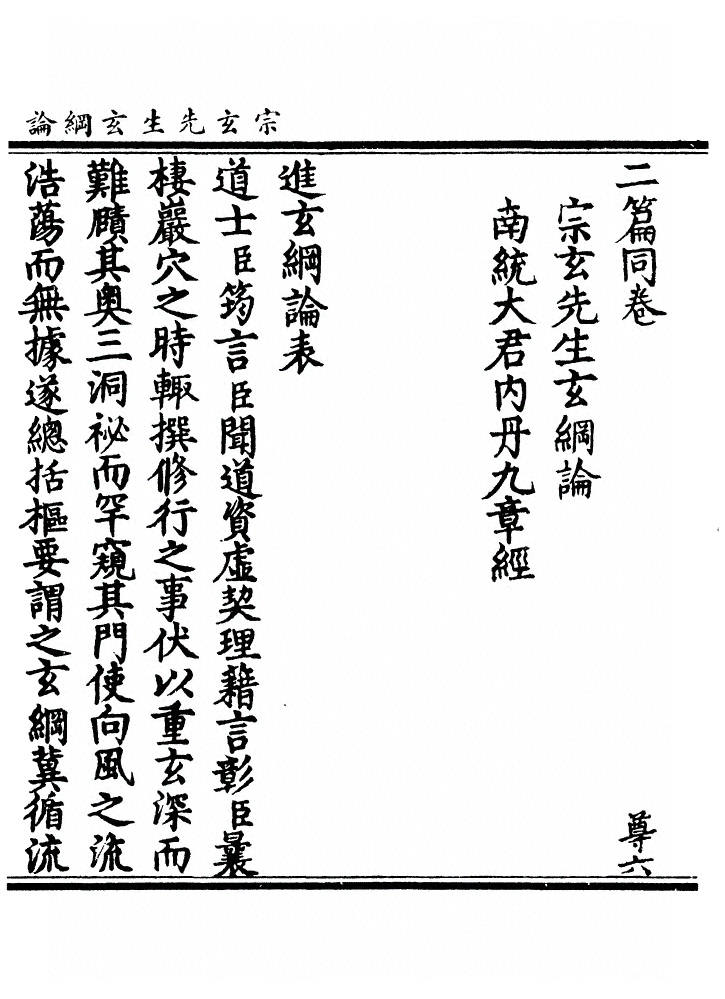 宗玄先生玄綱論
二篇同卷　尊六
宗玄先生玄綱論
南統大君内丹九章經
進玄綱論表
道士臣筠言臣聞道資虛契理藉言彰臣曩
棲巖穴之時輙撰修行之事伏以重玄深而
難賾其奧三洞祕而罕窺其門使向風之流
浩蕩而無據遂總括樞要謂之玄綱冀循流